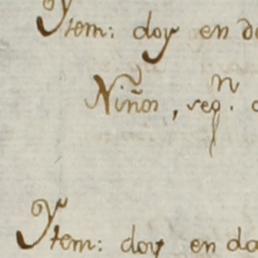 Ytem: doy en d
Niños, seg.n
Ytem: doy en do